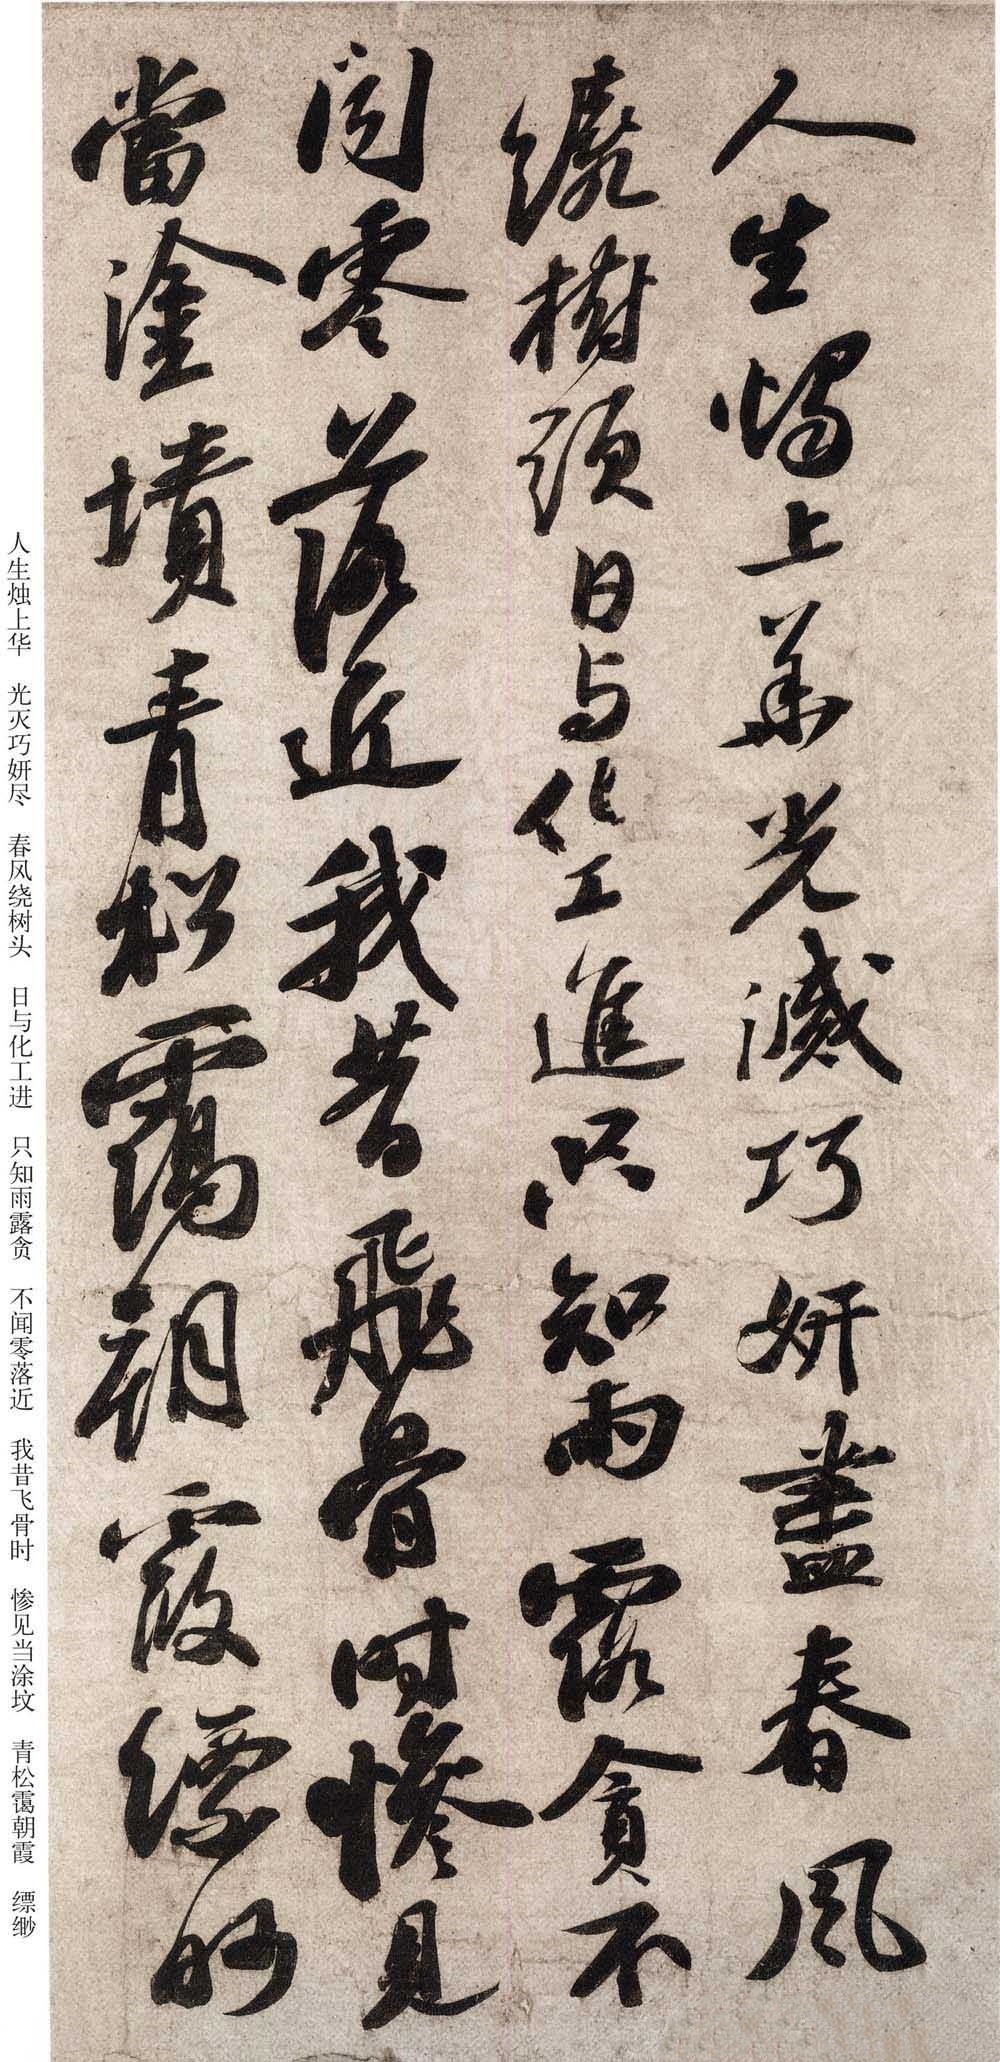 人生燭上華光滅巧妍盡春風
繞樹頭日与化工進只知雨露貪不
闻零落近我昔飛骨時慘見
當塗墳青松靄朝霞縹眇
人生烛上华 光灭巧妍尽 春风绕树头 日与化工进 只知雨露贪 不闻零落近 我昔飞骨时 惨见当涂坟 青松霭朝霞 缥缈